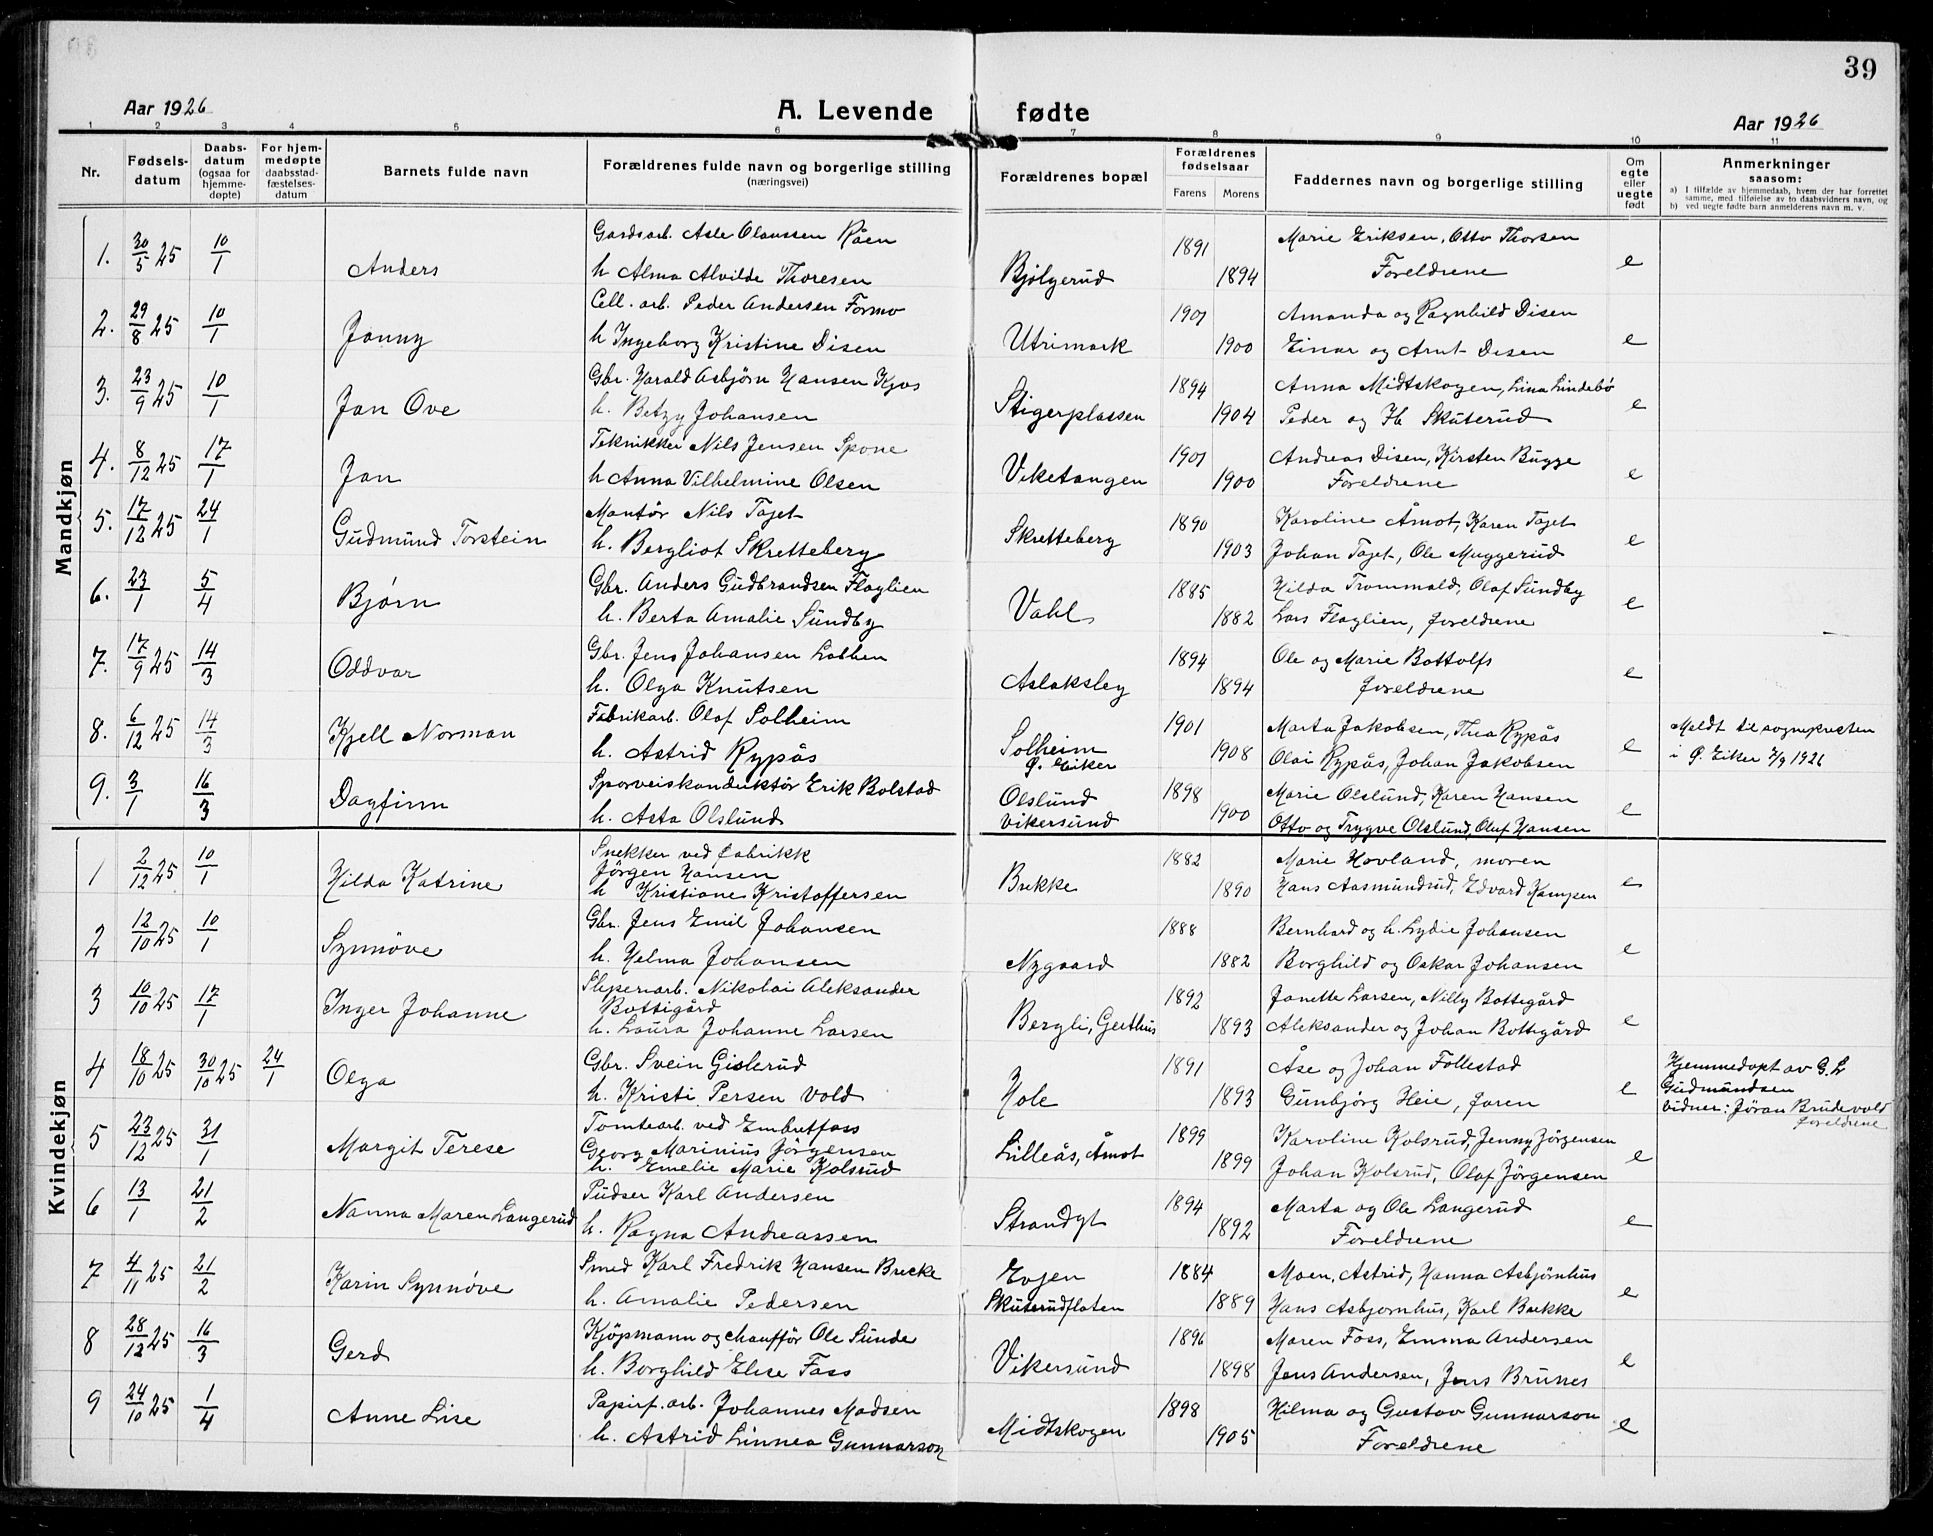 39
Aar 1926
A. Levende fødte
Aar 1926
1 2 3 4 5 6 7 8 9 10 11
Nr.
Fødsels-
datum
Daabs-
datum
(ogsaa for
hjemme-
døpte)
For hjem-
medøpte
daabsstad-
fæstelses-
datum
Barnets fulde navn
Forældrenes fulde navn og borgerlige stilling
(næringsvei)
Forældrenes bopæl
Forældrenes
fødselsaar
Farens Morens
Faddernes navn og borgerlige stilling
Om
egte
eller
uegte
født
Anmerkninger
saasom:
a) I tilfælde av hjemmedaab, hvem der har forrettet
samme, med tilføielse av to daabsvidners navn, og
b) ved uegte fødte barn anmelderens navn m. v.
Mandkjøn
Gardsarb. Asle Olaussen Råen 1891 Marie Eriksen, Otto Thorsen
1. 30/5 25 10/1 Anders h Alma Alvilde Thoresen Bjølgerud 1894 Foreldrene e
Cell. arb. Peder Andersen Formo 1901 Amanda og Ragnhild Disen
2. 29/8 25 10/1 Janny h Ingeborg Kristine Disen Utrimark 1900 Einar og Arnt Disen e
Gbr. Harald Asbjørn Hansen Kjos 1894 Anna Midtskogen, Lina Lindebø
3. 23/9 25 10/1 Jan Ove h. Betzy Johansen Stigerplassen 1904 Peder og Hb Skuterud e
Teknikker Nils Jensen Spone 1901 Andreas Disen, Kirsten Bugge
4. 8/12 25 17/1 Jan h Anna Vilhelmine Olsen Viketangen 1900 Foreldrene e
Montør Nils Tajet 1890 Karoline Åmot, Karen Tajet
5. 17/12 25 24/1 Gudmund Torstein h. Bergliot Skretteberg Skretteberg 1903 Johan Tajet, Ole Muggerud e
Gbr. Anders Gudbrandsen Flaglien 1885 Hilda Trommald, Olaf Sundby
6. 23/1 5/4 Bjørn h. Berta Amalie Sundby Vahl 1882 Lars Flaglien, foreldrene e
Gbr. Jens Johansen Lobben 1894 Ole og Marie Bottolfs
7. 17/9 25 14/3 Oddvar h. Olga Knutsen Aslaksby 1894 foreldrene e
Fabrikarb. Olaf Solheim 1901 Marta Jakobsen, Thea Rypås Meldt til sognepresten
8. 6/12 25 14/3 Kjell Norman h. Astrid Rypås Solheim Ø. Eiker 1908 Olai Rypås, Johan Jakobsen e i Ø. Eiker 7/9 1926
Sporveiskonduktør Erik Bolstad Olslund 1898 Marie Olslund, Karen Hansen
9. 3/1 16/3 Dagfinn h. Asta Olslund Vikersund 1900 Otto og Trygve Olslund, Oluf Hansen e
Kvindekjøn
Snekker ved fabrikk 1882 Marie Hovland, moren
Jörgen Hansen
1 2/12 25 10/1 Hilda Katrine h Kristiane Kristoffersen Brekke 1890 Hans Aasmundrud, Edvard Kampen e
Gbr. Jens Emil Johansen 1888 Bernhard og h. Lydie Johansen
2 12/10 25 10/1 Synnöve h. Helma Johansen Nygaard 1882 Borghild og Oskar Johansen e
Sliperiarb. Nikolai Aleksander 1892 Janette Larsen, Nilly Bottegård
Bottigård
3 10/10 25 17/1 Inger Johanne h. Laura Johanne Larsen Bergli, Geithus 1893 Aleksander og Johan Bottegård e
Gbr. Svein Gislerud 1891 Åse og Johan Follestad Hjemmedøpt av G. L
4 18/10 25 30/10 25 24/1 Olga h. Kristi Persen Vold Hole 1893 Gunbjørg Heie, faren e Gudmundsen
Vidner: Jöran Brudevold
foreldrene
Tomtearb. ved Embretfoss 1899 Karoline Kolsrud, Jenny Jörgensen
5 23/12 25 31/1 Margit Terese Georg Marinius Jörgensen Lilleås, Åmot
h. Emelie Marie Kolsrud 1899 Johan Kolsrud, Olaf Jörgensen e
Pudser Karl Andersen 1894 Marta og Ole Langerud
6 13/1 21/2 Nanna Maren Langerud h. Ragna Andreassen Strandgt 1892 Foreldrene e
Smed Karl Fredrik Hansen Brekke Evjen 1884 Moen, Astrid, Hanna Asbjørnhus
7 4/11 25 21/2 Karin Synnöve h. Amalie Pedersen Skuterudflaten 1889 Hans Asbjørnhus, Karl Brekke e
Kjöpmann og chaufför Ole Sunde 1896 Maren Foss, Emma Andersen
8 28/12 25 16/3 Gerd h. Borghild Elise Foss Vikersund 1898 Jens Andersen, Jens Brunes e
Papirf. arb. Johannes Madsen 1898 Hilma og Gustav Gunnarson
9 24/10 25 1/4 Anne Lise h. Astrid Linnea Gunnarson Midtskogen 1905 Foreldrene e